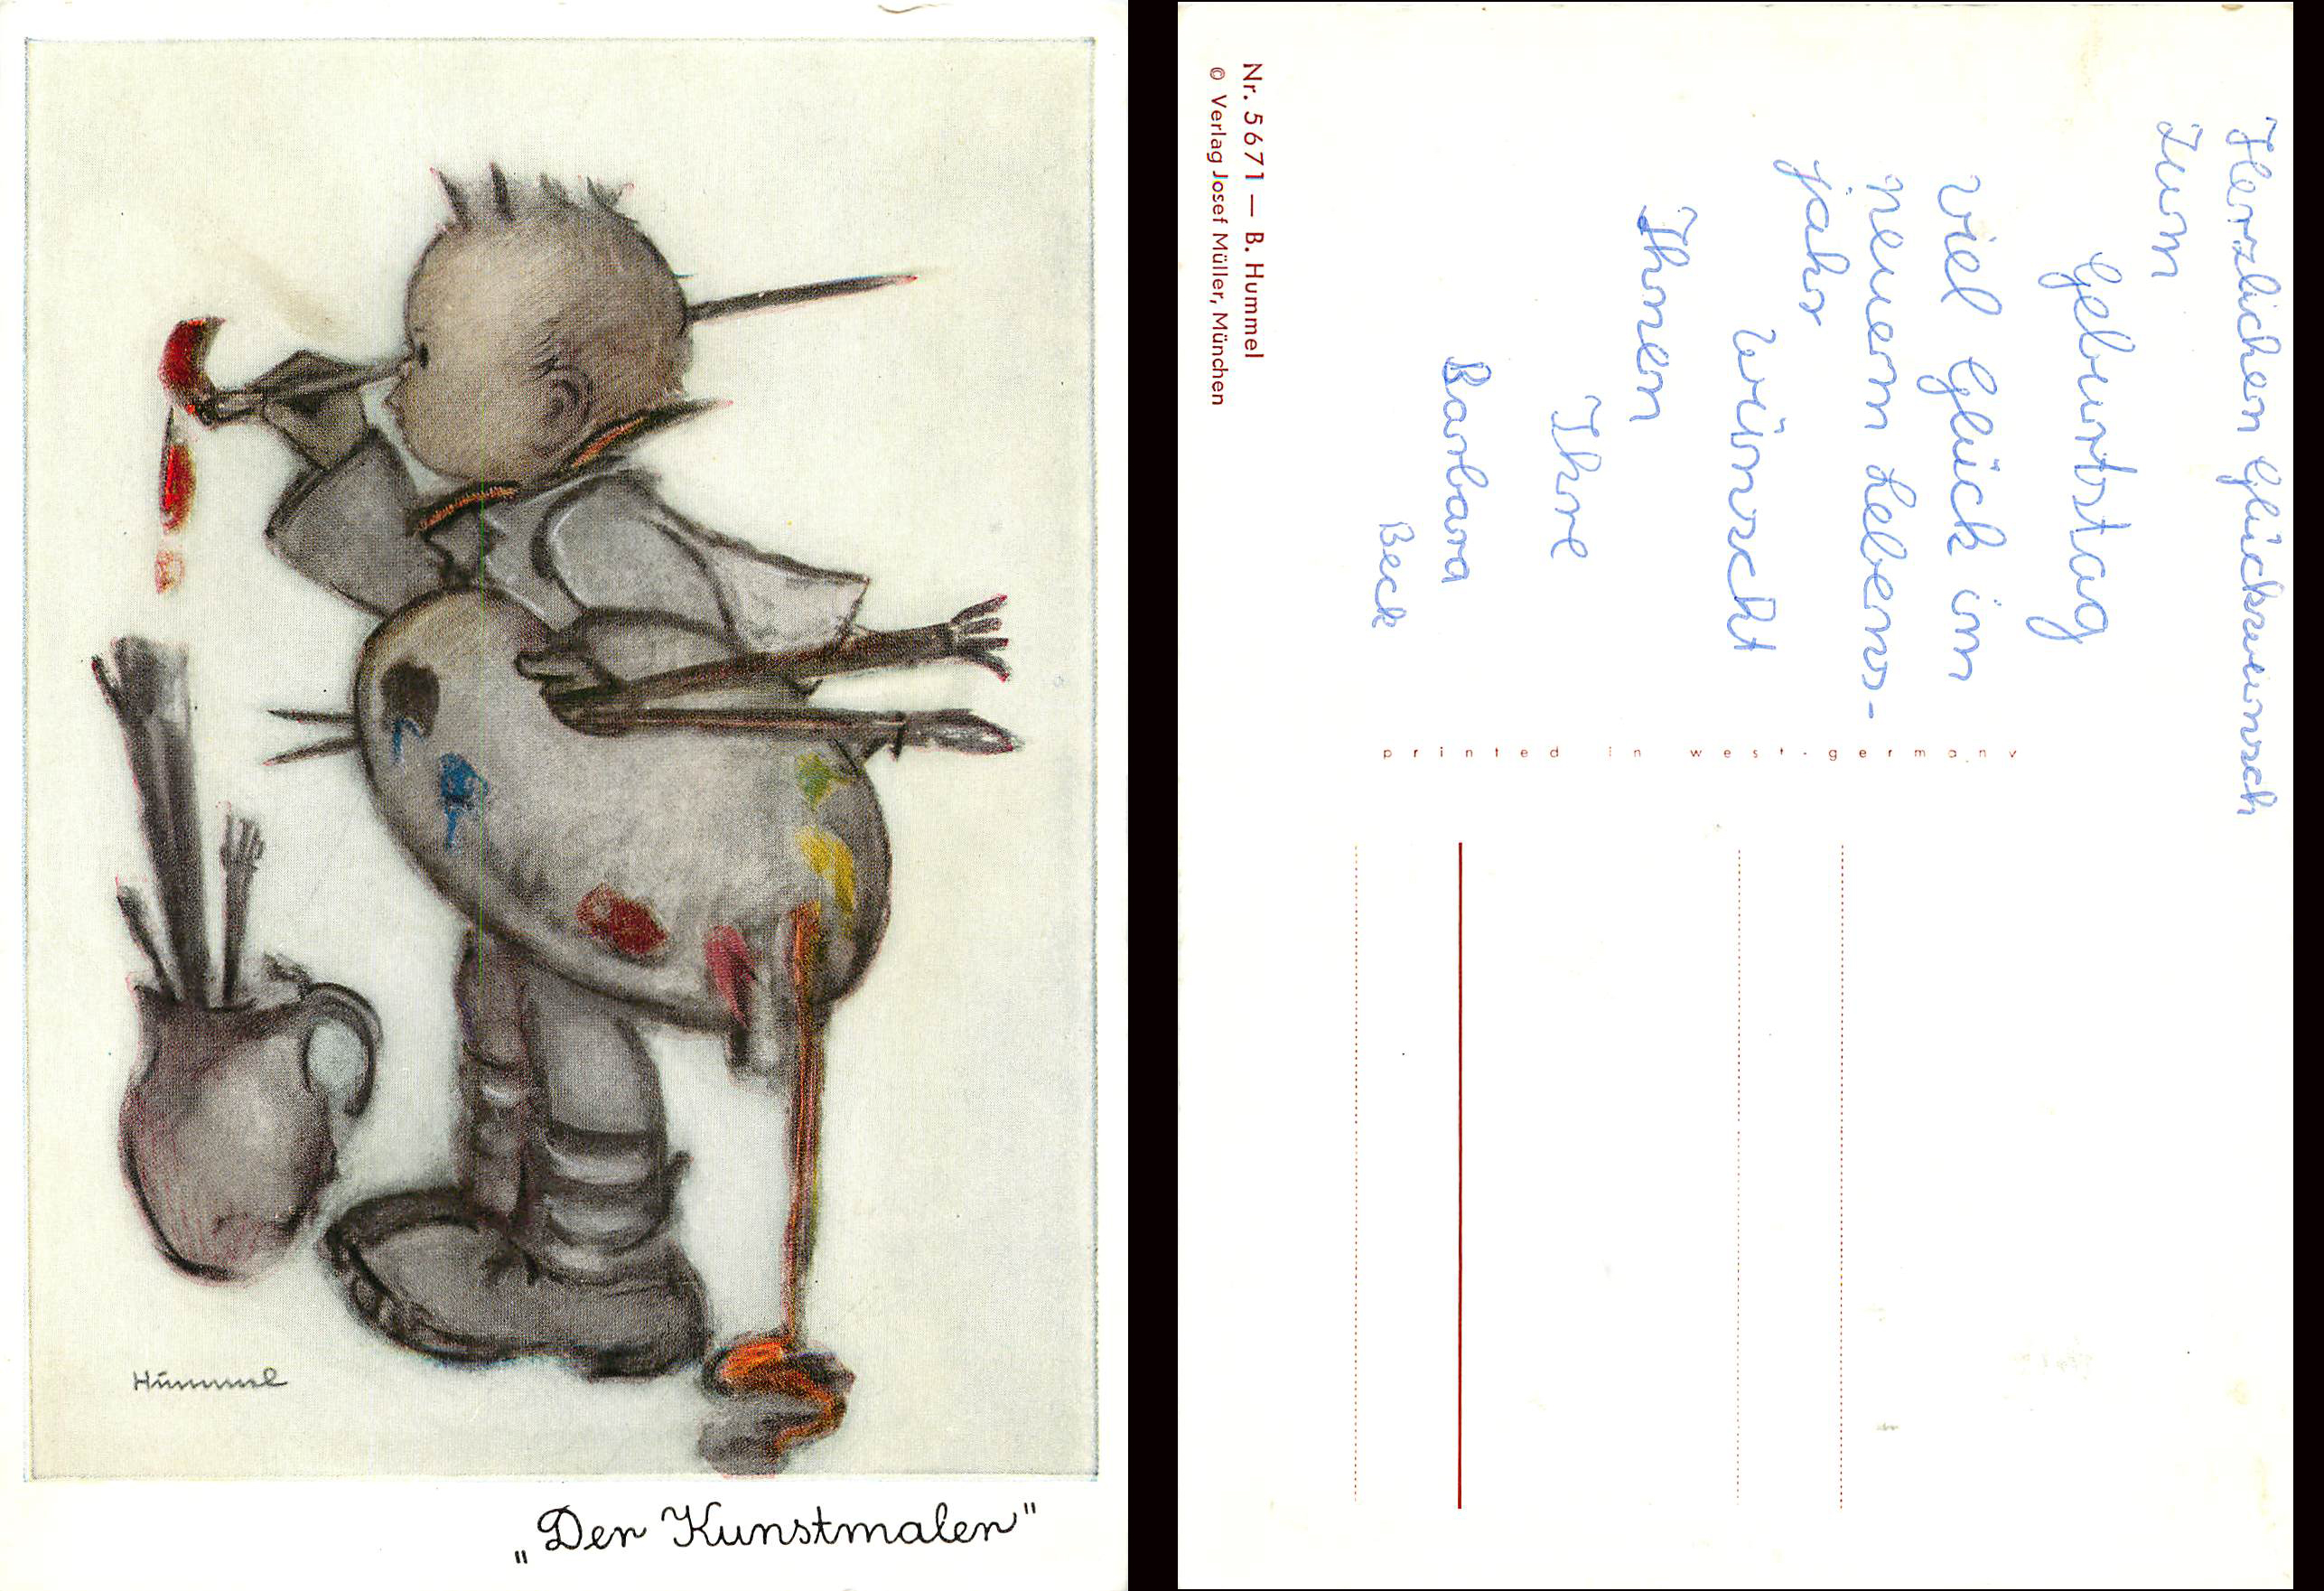 Hummel
„Der Kunstmaler"
Nr. 5671 — B. Hummel
© Verlag Josef Müller, München
Herzlichen Glückwunsch
zum
Geburtstag
viel Glück im
neuem Lebens-
jahr
wünscht
Ihnen
Ihre
Barbara
Beck
printed in west-germany